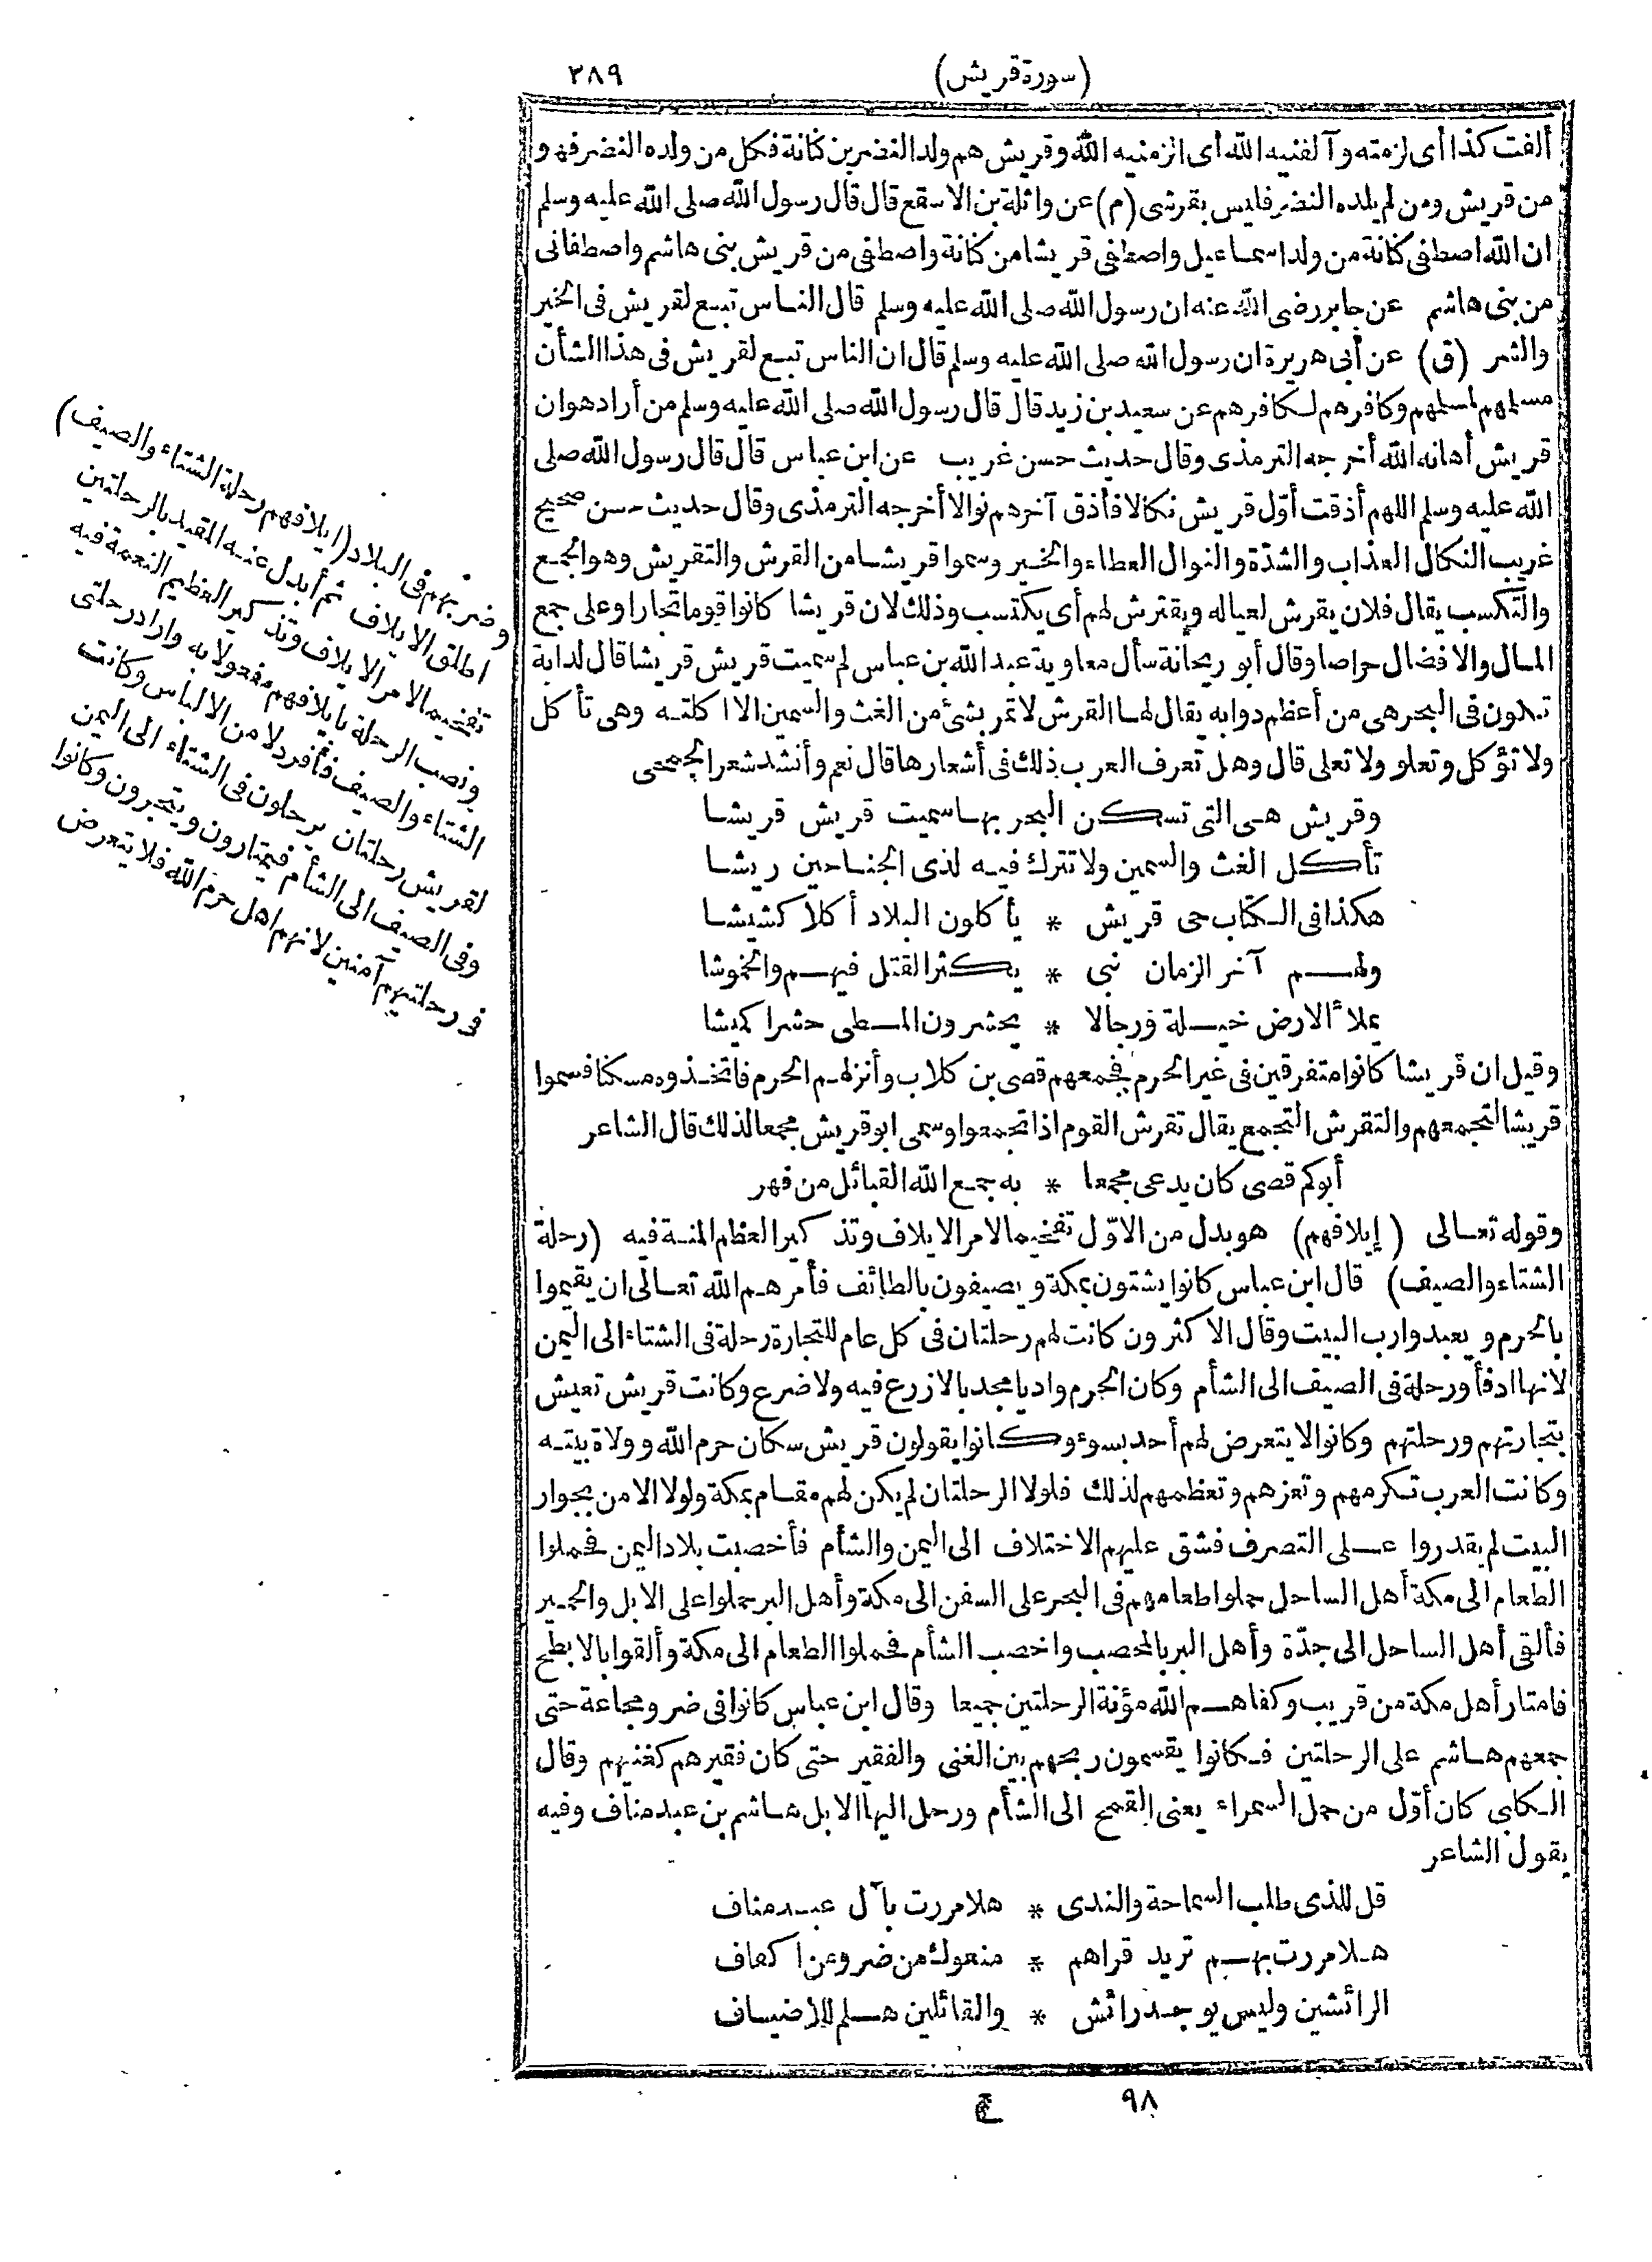 (سورة قريش)
٣٨٩
ألفت كذا أى لزمته وآلفنيه الله أى الزمنيه الله وقريش هم ولد النضر بن كنانة فكل من ولده النضر فهو
من قريش ومن لم يلده النضر فليس بقرشى (م) عن واثلة بن الاسقع قال قال رسول الله صلى الله عليه وسلم
ان الله اصطفى كنانة من ولد اسماعيل واصطفى قريشا من كنانة واصطفى من قريش بنى هاشم واصطفانى
من بنى هاشم عن جابر رضى الله عنه ان رسول الله صلى الله عليه وسلم قال الناس تبع لقريش فى الخير
والشر (ق) عن أبى هريرة ان رسول الله صلى الله عليه وسلم قال ان الناس تبع لقريش فى هذا الشأن
مسلمهم لمسلمهم وكافرهم لكافرهم عن سعيد بن زيد قال قال رسول الله صلى الله عليه وسلم من أراد هوان
قريش أهانه الله أخرجه الترمذى وقال حديث حسن غريب عن ابن عباس قال قال رسول الله صلى
الله عليه وسلم اللهم أذقت أوّل قريش نكالا فأذق آخرهم نوالا أخرجه الترمذى وقال حديث حسن صحيح
غريب النكال العذاب والشدّة والنوال العطاء والخير وسموا قريشا من القرش والتقريش وهو الجمع
والتكسب يقال فلان يقرش لعياله ويقترش لهم أى يكتسب وذلك لان قريشا كانوا قوما تجارا وعلى جمع
المال والافضال حراصا وقال أبو ريحانة سأل معاوية عبد الله بن عباس لم سميت قريش قريشا قال لدابة
تكون فى البحر هى من أعظم دوابه يقال لها القرش لا تمر بشئ من الغث والسمين الا اكلته وهى تأكل
ولا تؤكل وتعلو ولا تعلى قال وهل تعرف العرب ذلك فى أشعارها قال نعم وأنشد شعر الجمحى
وقريش هى التى تسكن البحر بها سميت قريش قريشا
تأكل الغث والسمين ولا تترك فيه لذى الجناحين ريشا
هكذا فى الكتاب حى قريش * يأكلون البلاد أكلا كشيشا
ولهم آخر الزمان نبى * يكثر القتل فيهم والخموشا
يملأ الارض خيلة ورجالا * يحشرون المطى حشرا كميشا
وقيل ان قريشا كانوا متفرقين فى غير الحرم فجمعهم قصى بن كلاب وأنزلهم الحرم فاتخذوه مسكنا فسموا
قريشا لتجمعهم والتقرش التجمع يقال تقرش القوم اذا تجمعوا وسمى ابو قريش مجمعا لذلك قال الشاعر
أبوكم قصى كان يدعى مجمعا * به جمع الله القبائل من فهر
وقوله تعالى (إيلافهم) هو بدل من الاوّل تفخيما لامر الايلاف وتذكيرا لعظم المنة فيه (رحلة
الشتاء والصيف) قال ابن عباس كانوا يشتون بمكة ويصيفون بالطائف فأمرهم الله تعالى ان يقيموا
بالحرم ويعبدوا رب البيت وقال الاكثرون كانت لهم رحلتان فى كل عام للتجارة رحلة فى الشتاء الى اليمن
لانها ادفأ ورحلة فى الصيف الى الشأم وكان الحرم واديا مجدبا لا زرع فيه ولا ضرع وكانت قريش تعيش
بتجارتهم ورحلتهم وكانوا لا يتعرض لهم أحد بسوء وكانوا يقولون قريش سكان حرم الله وولاة بيته
وكانت العرب تكرمهم وتعزهم وتعظمهم لذلك فلولا الرحلتان لم يكن لهم مقام بمكة ولولا الامن بجوار
البيت لم يقدروا على التصرف فشق عليهم الاختلاف الى اليمن والشأم فأخصبت بلاد اليمن فحملوا
الطعام الى مكة أهل الساحل حملوا طعامهم فى البحر على السفن الى مكة وأهل البر حملوا على الابل والحمير
فألقى أهل الساحل الى جدّة وأهل البر بالمحصب واخصب الشأم فحملوا الطعام الى مكة وألقوا بالابطح
فامتار أهل مكة من قريب وكفاهم الله مؤنة الرحلتين جميعا وقال ابن عباس كانوا فى ضر ومجاعة حتى
جمعهم هاشم على الرحلتين فكانوا يقسمون ربحهم بين الغنى والفقير حتى كان فقيرهم كغنيهم وقال
الكلبى كان أوّل من حمل السمراء يعنى القمح الى الشأم ورحل اليها الابل هاشم بن عبد مناف وفيه
يقول الشاعر
قل للذى طلب السماحة والندى * هلا مررت بآل عبد مناف
هلا مررت بهم تريد قراهم * منعوك من ضر وعن اكفاف
الرائشين وليس يوجد رائش * والقائلين هلم للاضياف
٩٨
خ
وضربهم فى البلاد (ايلافهم رحلة الشتاء والصيف)
اطلق الايلاف ثم أبدل عنه المقيد بالرحلتين
تفخيما لامر الايلاف وتذكيرا لعظيم النعمة فيه
ونصب الرحلة بايلافهم مفعولا به واراد رحلتى
الشتاء والصيف فأفرد لا من الالباس وكانت
لقريش رحلتان يرحلون فى الشتاء الى اليمن
وفى الصيف الى الشأم فيمتارون ويتجرون وكانوا
فى رحلتيهم آمنين لانهم اهل حرم الله فلا يتعرض